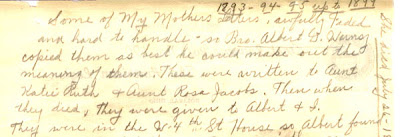 1893-94-95 up to 1899
Some of My Mothers Letters, awfully faded
and hard to handle - so Bro. Albert G.
copied them as best he could make out the
meaning of them. These were written to Aunt
Katie Ruth & Aunt Rosa Jacobs. Then when
they died, they were given to Albert & I.
They were in the N-4th St House so Albert found
She died July 26-